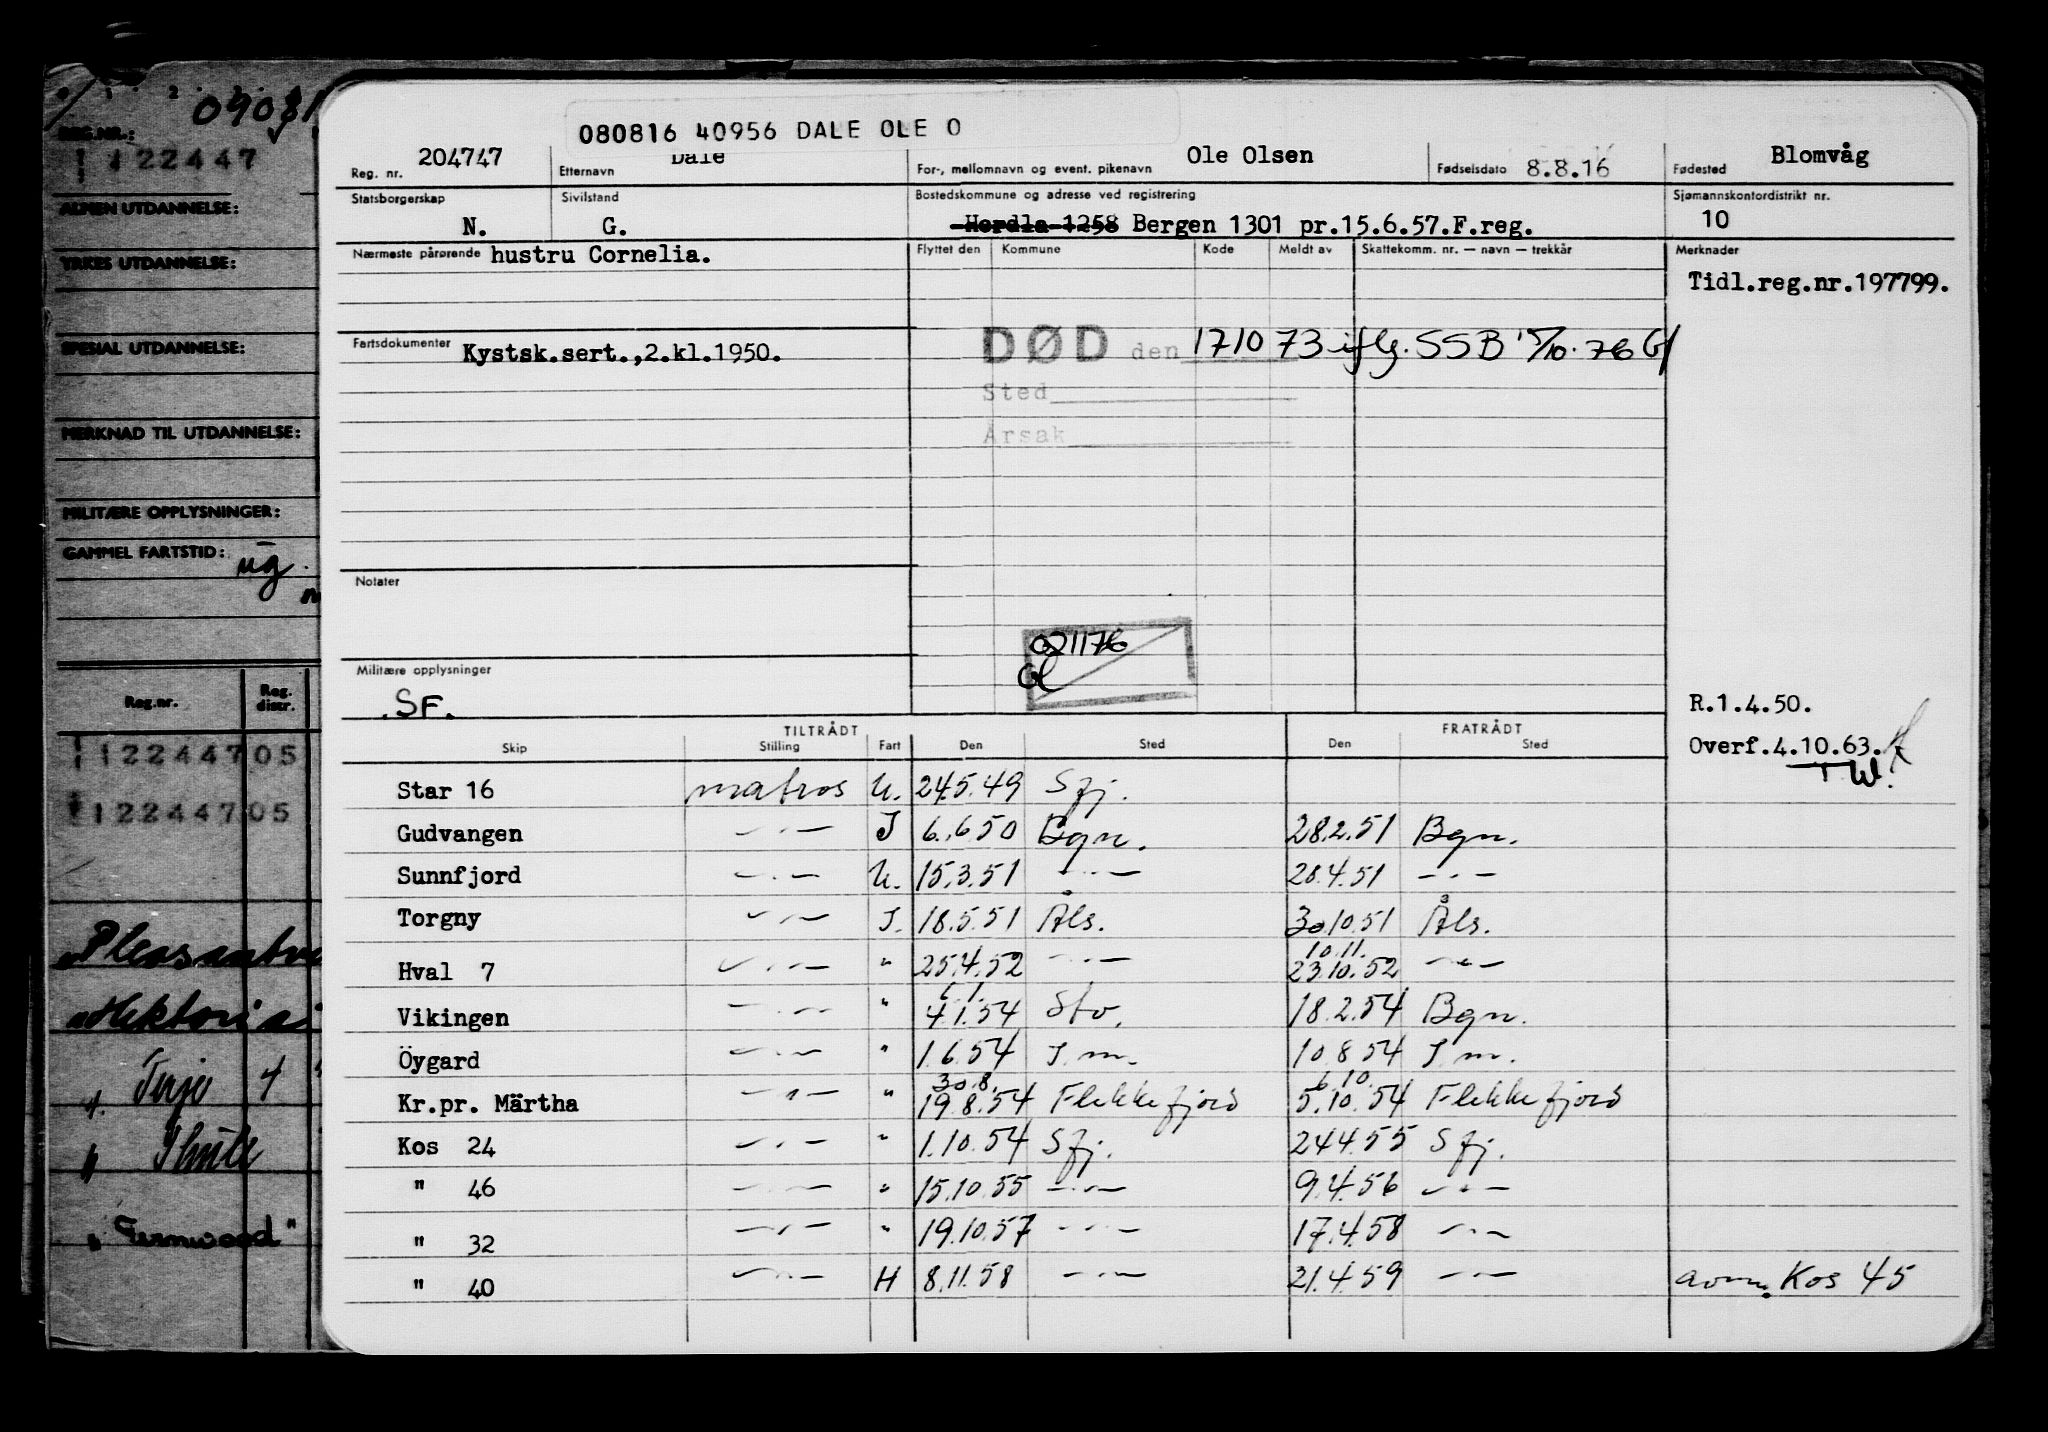 080816 40956 DALE OLE O
Reg. nr. 204747 Etternavn Dale For-, mellomnavn og event. pikenavn Ole Olsen Fødselsdato 8.8.16 Fødested Blomvåg
Statsborgerskap N. Sivilstand G. Bostedskommune og adresse ved registrering Herdla 1258 Bergen 1301 pr.15.6.57.F.reg. Sjømannskontordistrikt nr. 10
Nærmeste pårørende hustru Cornelia. Flyttet den Kommune Kode Meldt av Skattekomm. nr. — navn — trekkår Merknader
Tidl.reg.nr.197799.
Fartsdokumenter Kystsk.sert.,2.kl.1950. DØD den 171073 iflg. SSB 15/10.76
Sted
Årsak
Notater
021176
Militære opplysninger
SF.
R.1.4.50.
Overf.4.10.63.
T.W.
TILTRÅDT FRATRÅDT
Skip Stilling Fart Den Sted Den Sted
Star 16 matros U. 24.5.49 Sfj.
Gudvangen —·— J 6.6.50 Bgn. 28.2.51 Bgn.
Sunnfjord —·— U. 15.3.51 —·— 28.4.51 —·—
Torgny —·— J. 18.5.51 Åls. 30.10.51 Åls.
10.11.
Hval 7 —·— " 25.4.52 —·— 23.10.52 —·—
6.1.
Vikingen —·— " 4.1.54 Stv. 18.2.54 Bgn.
Öygard —·— " 1.6.54 J.m. 10.8.54 J.m.
30.8. 6.10.
Kr.pr. Märtha —·— " 19.8.54 Flekkefjord 5.10.54 Flekkefjord
Kos 24 —·— " 1.10.54 Sfj. 24.4.55 Sfj.
" 46 —·— " 15.10.55 —·— 9.4.56 —·—
" 32 —·— " 19.10.57 —·— 17.4.58 —·—
" 40 —·— H 8.11.58 —·— 21.4.59 —·— Kos 45
REG.NR.:
122447
ALMEN UTDANNELSE:
YRKES UTDANNELSE:
SPESIAL UTDANNELSE:
MERKNAD TIL UTDANNELSE:
MILITÆRE OPPLYSNINGER:
GAMMEL FARTSTID: ug.
Reg.nr. Reg. distr.
122447 05
122447 05
Terje 4
Thule
"Fernwood"